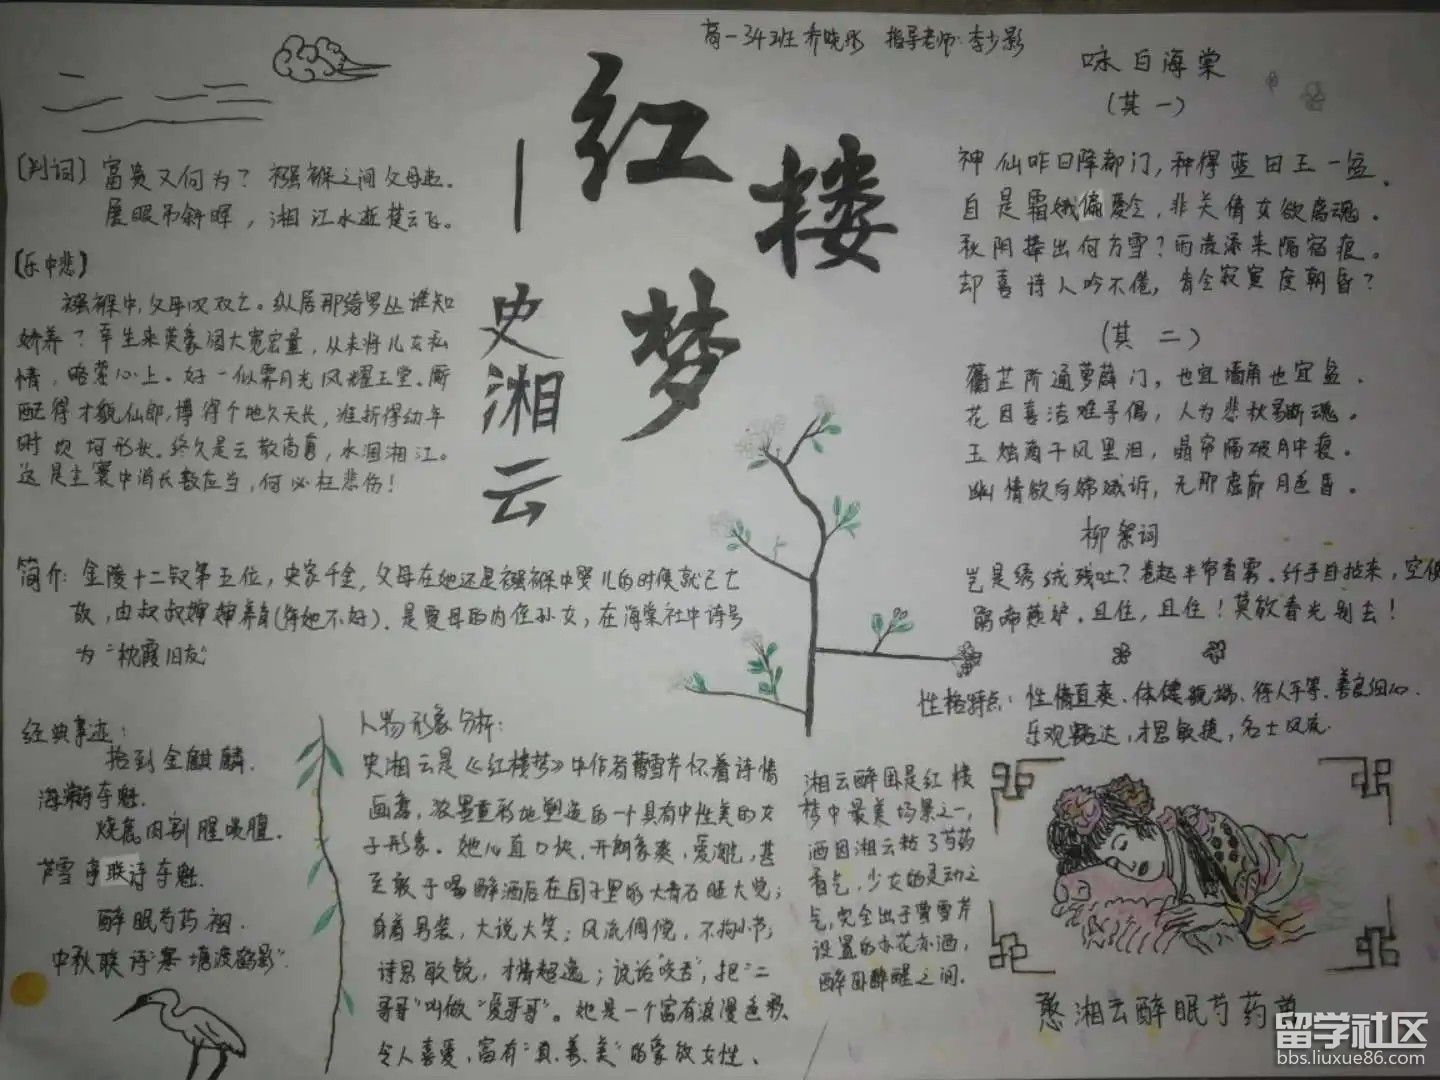 高一34班 乔晓彤 指导老师:李少影
红楼梦
—史湘云
[判词] 富贵又何为？襁褓之间父母违。
展眼吊斜晖，湘江水逝楚云飞。
[乐中悲]
襁褓中,父母叹双亡。纵居那绮罗丛谁知
娇养？幸生来英豪阔大宽宏量，从未将儿女私
情，略萦心上。好一似霁月光风耀玉堂。厮
配得才貌仙郎,博得个地久天长，准折得幼年
时坎坷形状。终久是云散高唐，水涸湘江。
这是尘寰中消长数应当，何必枉悲伤！
简介: 金陵十二钗第五位，史家千金，父母在她还是襁褓中婴儿的时候就已亡
故，由叔叔婶婶养身(待她不好)．是贾母的内侄孙女，在海棠社中诗号
为“枕霞旧友”
经典事迹：
拾到金麒麟．
海棠诗夺魁．
烧鹿肉割腥啖膻．
芦雪亭联诗夺魁．
醉眠芍药裀．
中秋联诗“寒塘渡鹤影”．
人物形象分析：
史湘云是《红楼梦》中作者曹雪芹怀着诗情
画意，浓墨重彩地塑造的一个具有中性美的女
子形象。她心直口快，开朗豪爽，爱淘气，甚
至敢于喝醉酒后在园子里的大青石睡大觉；
身着男装，大说大笑；风流倜傥，不拘小节；
诗思敏锐，才情超逸；说话“咬舌”，把“二
哥哥”叫做“爱哥哥”。她是一个富有浪漫色彩
令人喜爱，富有“真、善、美”的豪放女性、
咏白海棠
(其一)
神仙昨日降都门，种得蓝田玉一盆．
自是霜娥偏爱冷，非关倩女欲离魂。
秋阴捧出何方雪？雨渍添来隔宿痕。
却喜诗人吟不倦，肯令寂寞度朝昏？
(其二)
蘅芷阶通萝薜门，也宜墙角也宜盆．
花因喜洁难寻偶，人为悲秋易断魂。
玉烛滴干风里泪，晶帘隔破月中痕。
幽情欲向嫦娥诉，无那虚廊月色昏。
柳絮词
岂是绣绒残吐？卷起半帘香雾．纤手自拈来，空使
鹃啼燕妒．且住，且住！莫放春光别去！
性格特点：性情直爽、体健貌端、待人平等、善良细心．
乐观豁达，才思敏捷，名士风流
湘云醉困是红楼
梦中最美场景之一，
酒因湘云粘了芍药
香气，少女的灵动之
气，完全出于曹雪芹
设置的亦花亦酒，
醉因醉醒之间．
憨湘云醉眠芍药茵
留学社区
bbs.liuxue86.com